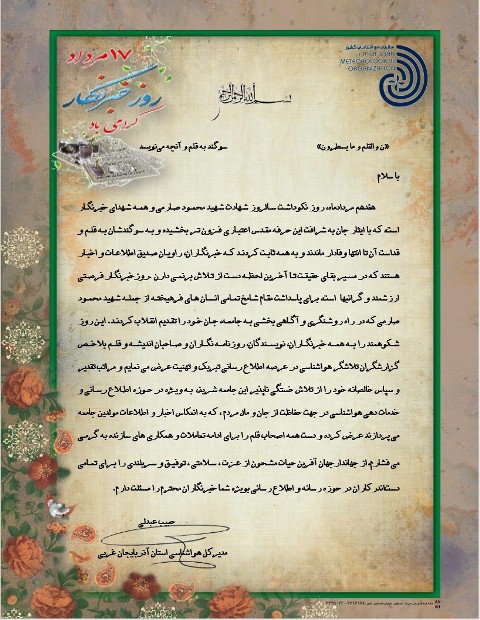 ۱۷ مرداد
روز خبرنگار
گرامی باد
سازمان هواشناسی کشور
I.R OF IRAN
METEOROLOGICAL
ORGANIZATION
بسم الله الرحمن الرحیم
«ن والقلم و ما یسطرون» سوگند به قلم و آنچه می‌نویسد
با سلام
هفدهم مردادماه، روز نکوداشت سالروز شهادت شهید محمود صارمی و همه شهدای خبرنگار
است که با ایثار جان به شرافت این حرفه مقدس اعتباری فزون تر بخشیده و به سوگندشان به قلم و
قداست آن تا انتها وفادار ماندند و به همه ثابت کردند که خبرنگاران، راویان صدیق اطلاعات و اخبار
هستند که در مسیر بقای حقیقت تا آخرین لحظه دست از تلاش برنمی دارن. روز خبرنگار فرصتی
ارزشمند و گرانبها است برای پاسداشت مقام شامخ تمامی انسان های فرهیخته از جمله شهید محمود
صارمی که در راه روشنگری و آگاهی بخشی به جامعه، جان خود را تقدیم انقلاب کردند. این روز
شکوهمند را به همه خبرنگاران، نویسندگان، روزنامه نگاران و صاحبان اندیشه و قلم بلاخص
گزارشگران تلاشگر هواشناسی در عرصه اطلاع رسانی تبریک و تهنیت عرض می نمایم و مراتب تقدیر
و سپاس خالصانه خود را از تلاش خستگی ناپذیر این جامعه شریف به ویژه در حوزه اطلاع رسانی و
خدمات دهی هواشناسی در جهت حفاظت از جان و مال مردم، که به انعکاس اخبار و اطلاعات مولدین جامعه
می پردازند عرض کرده و دست همه اصحاب قلم را برای ادامه تعاملات و همکاری های سازنده به گرمی
می فشارم. از جهاندار جهان آفرین حیات مشحون از عزت، سلامتی، توفیق و سربلندی را برای تمامی
دستاندرکاران در حوزه رسانه و اطلاع رسانی بویژه شما خبرنگاران محترم را مسئلت دارم.
حبیب عبدلی
مدیر کل هواشناسی استان آذربایجان غربی